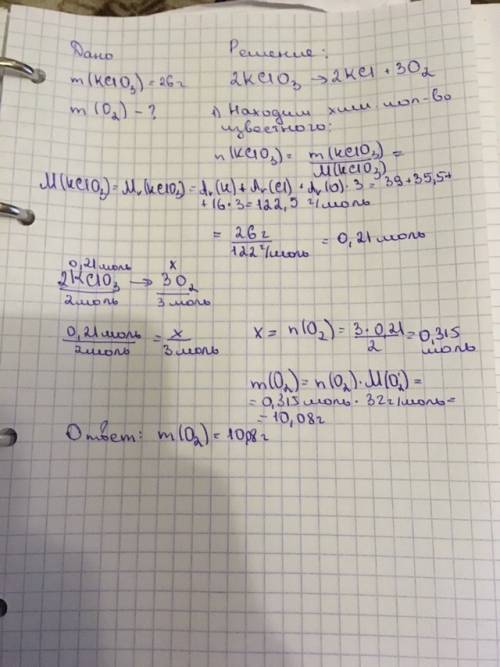 Дано
Решение:
m(KClO3) = 26г
2KClO3 → 2KCl + 3O2
m(O2) - ?
1) Находим хим. кол-во
известного:
n(KClO3) = m(KClO3) / M(KClO3) =
M(KClO3) = Mr(KClO3) = Ar(K) + Ar(Cl) + Ar(O) · 3 = 39 + 35,5 +
+ 16 · 3 = 122,5 г/моль
= 26г / 122 г/моль = 0,21 моль
0,21 моль x
2KClO3 → 3O2
2 моль 3 моль
0,21 моль / 2 моль = x / 3 моль
x = n(O2) = 3 · 0,21 / 2 = 0,315 моль
m(O2) = n(O2) · M(O2) =
= 0,315 моль · 32 г/моль =
= 10,08г
Ответ: m(O2) = 10,08г